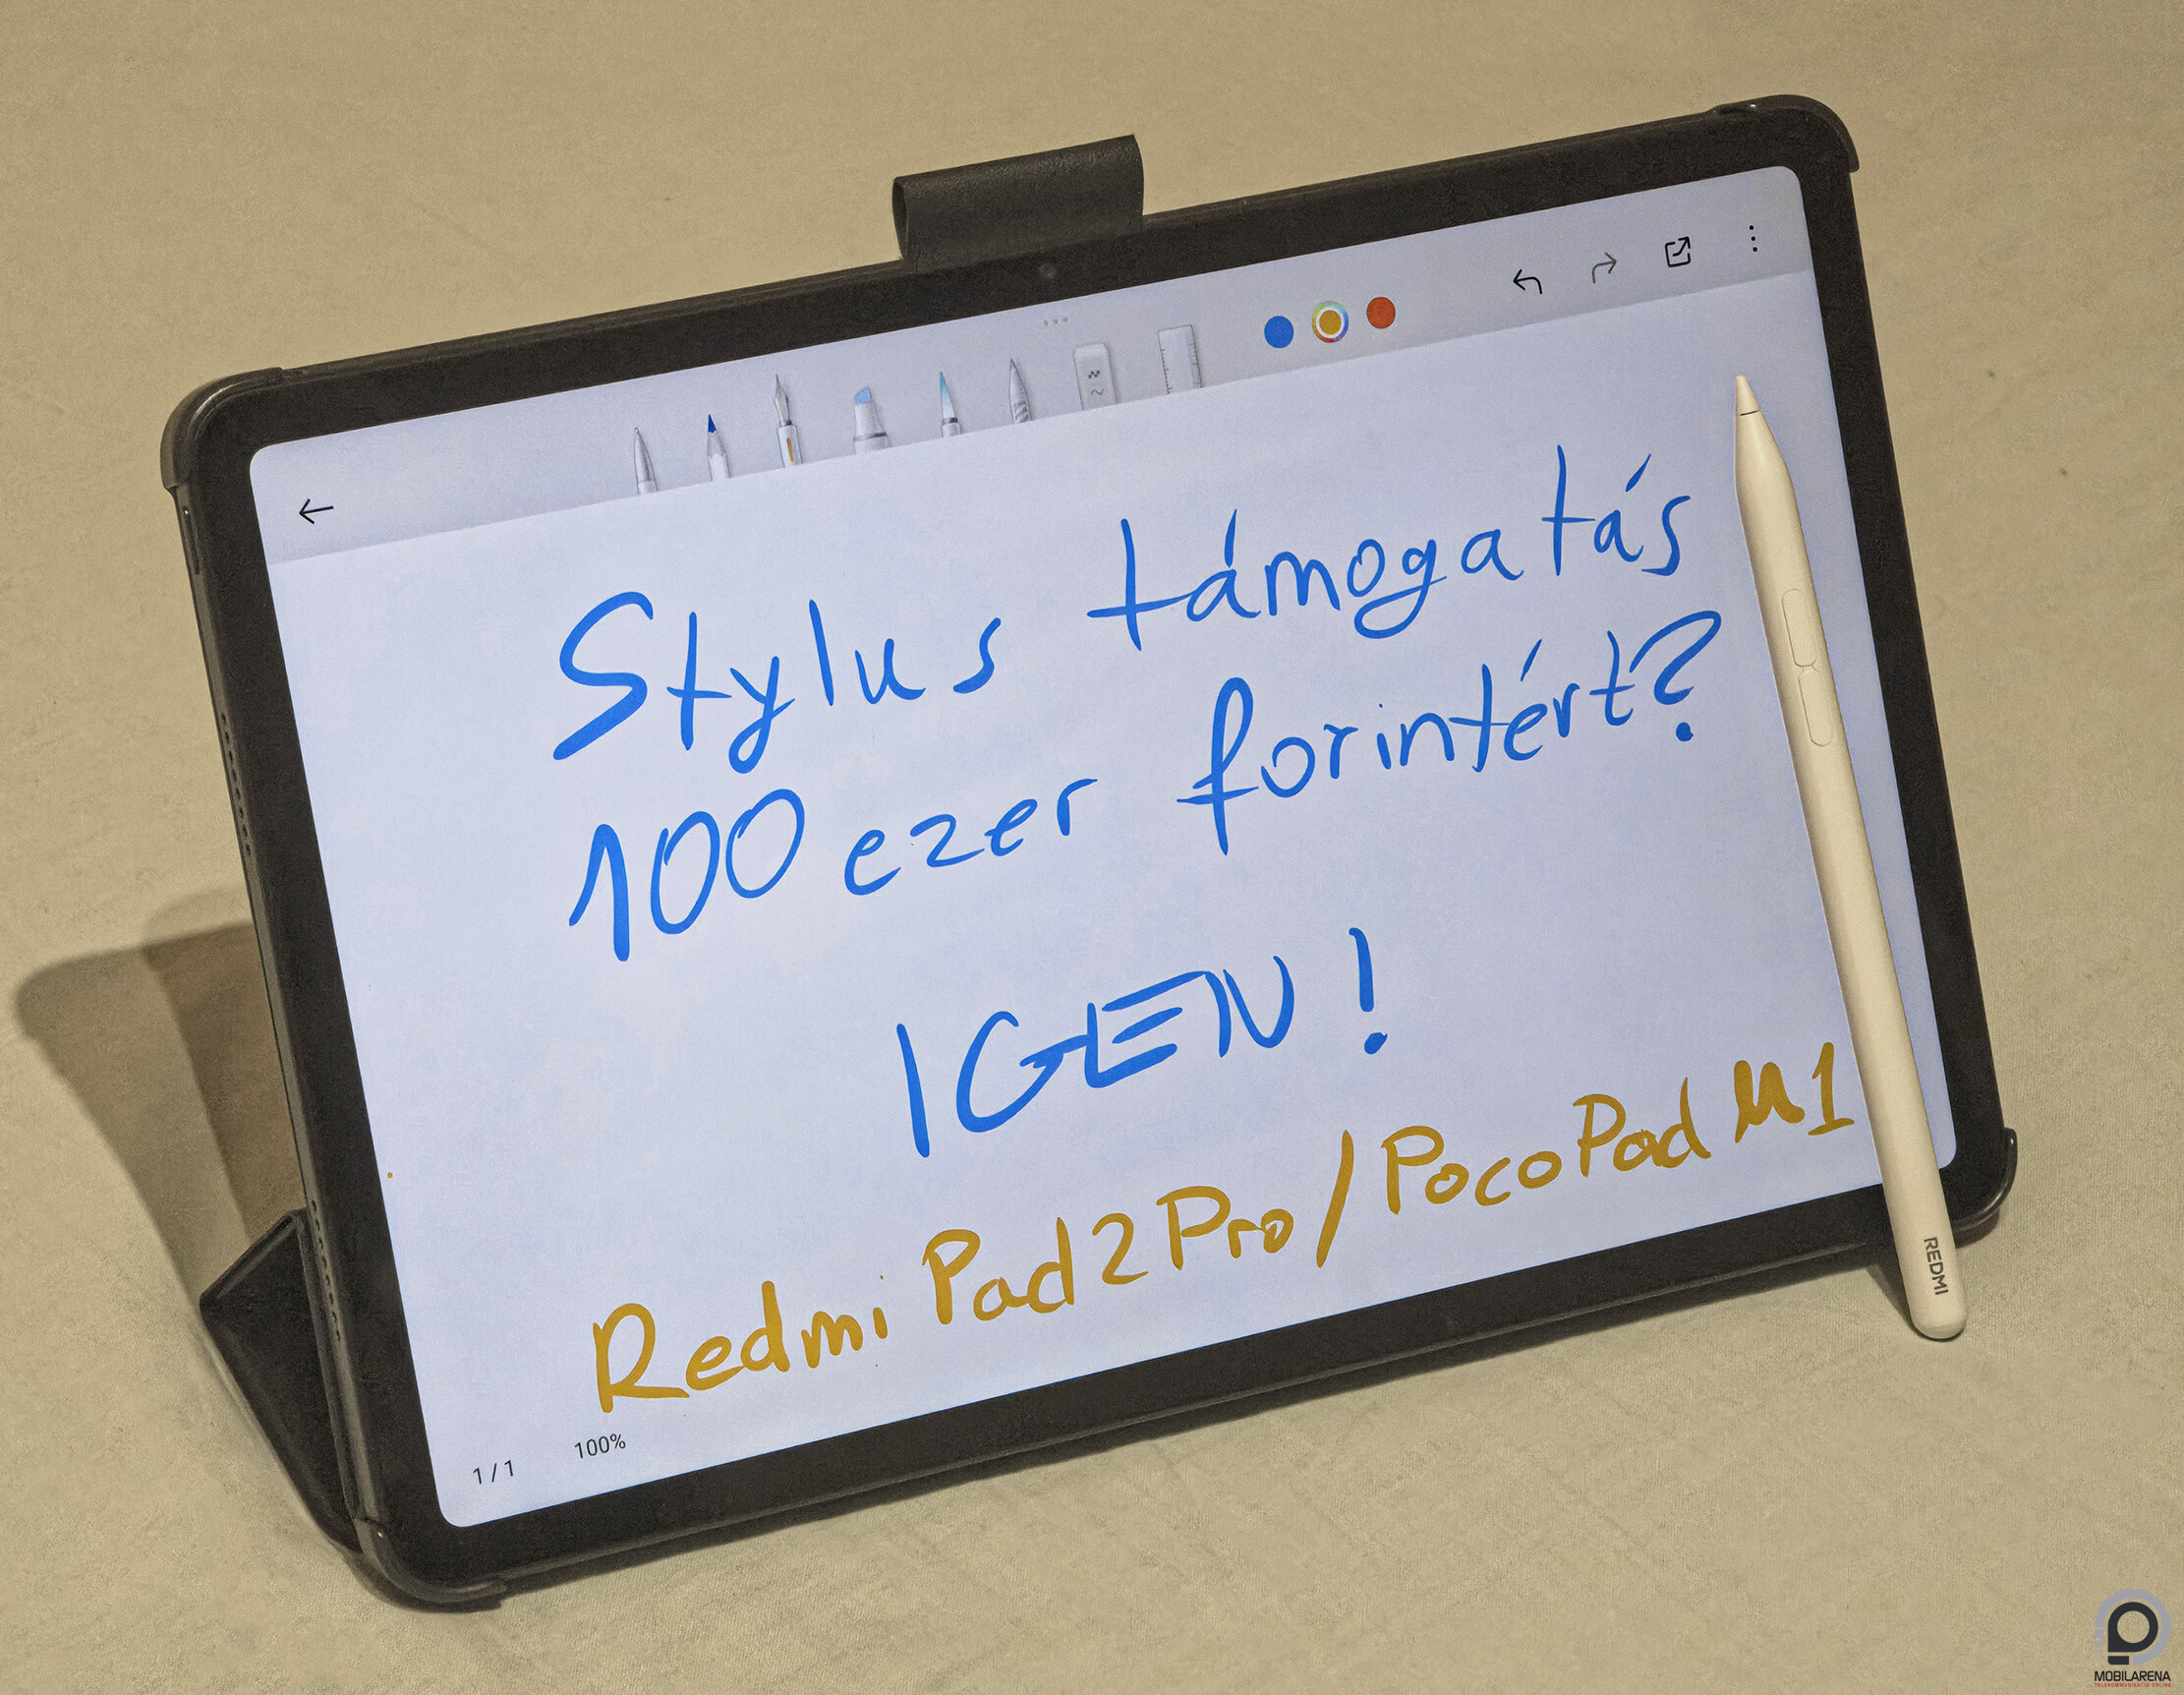 Stylus támogatás
100 ezer forintért?
IGEN!
Redmi Pad 2 Pro/Poco Pad M1
1/1
100%
REDMI
MOBILARENA
TELEKOMMUNIKÁCIÓ ONLINE